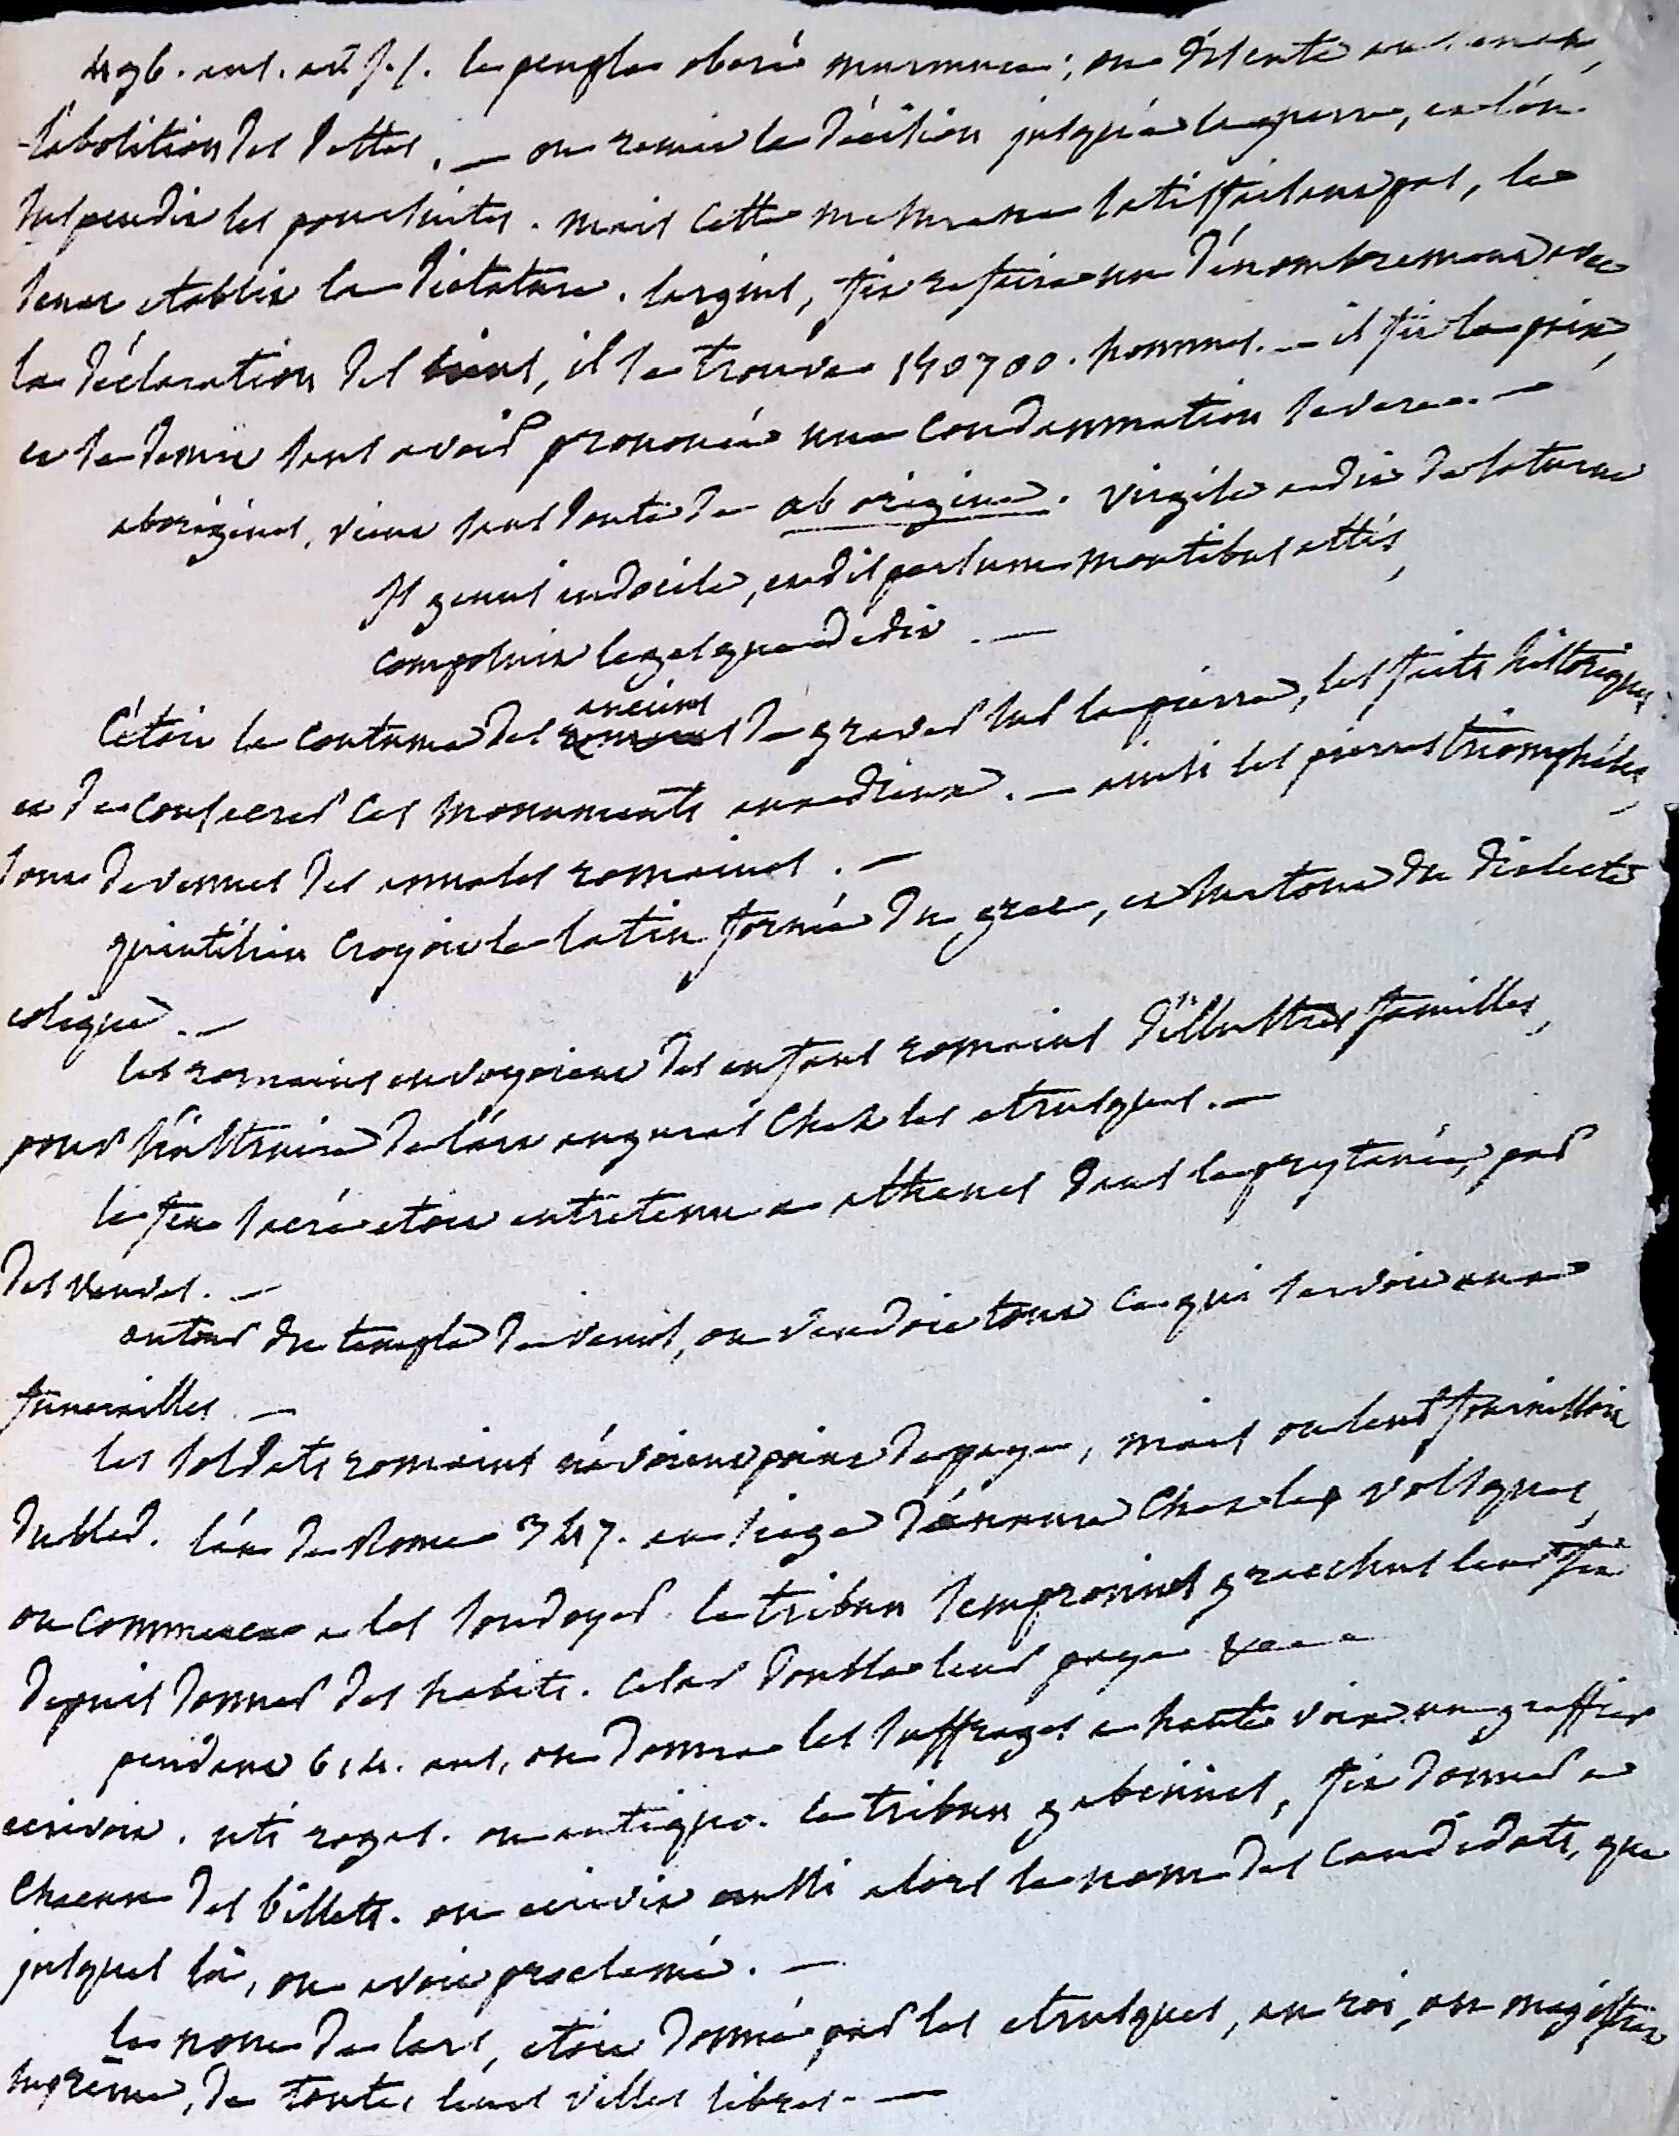 496. ans. av. J.-C. le peuple obéré murmura ; on discuta au sénat,
l'abolition des dettes. — on remit la décision jusqu'a la guerre, et l'on
suspendit les poursuites. mais cette mesure ne satisfaisant pas, le
senat etablit la dictature. largius, fit refaire un dénombrement avec
la déclaration des biens, il se trouva 140700. hommes. — il fit la paix,
et se demit sans avoir prononcé une condamnation severe. —
aborigenes, vient sans doute de ab origine. virgile a dit de saturne
Is genus indocile, ac dispersum montibus altis,
composuit legesque dedit. —
C'étoit la coutume des anciens de graver sur la pierre, les faits historiques,
et de consacrer ces monuments aux dieux. — ainsi les pierres triomphales,
sont devenues des annales romaines. —
quintilien croyoit le latin formé du grec, et surtout du dialecte
eolique. —
les romains envoyoient des enfans romains d'illustres familles,
pour s'instruire de l'art augural chez les etrusques. —
le feu sacré etoit entretenu a athenes dans le prytanée, par
des veuves. —
autour du temple de venus, on vendoit tout ce qui servoit aux
funerailles. —
les soldats romains n'avoient point de paye, mais on leur fournissoit
du bled. l'an de Rome 347. au siege d'anxur chez les volsques,
on commença a les soudoyer. le tribun sempronius gracchus leur fit
depuis donner des habits. Cesar doubla leur paye
pendant 614. ans, on donna les suffrages a haute voix. un greffier
ecrivoit. uti rogas. ou antiquo. le tribun gabinius, fit donner a
chacun des billets. on ecrivit aussi alors le nom des candidats, que
jusques là, on avoit proclamé. —
le nom de lars, etoit donné par les etrusques, au roi, ou magistrat
suprême, de toutes leurs villes libres. —